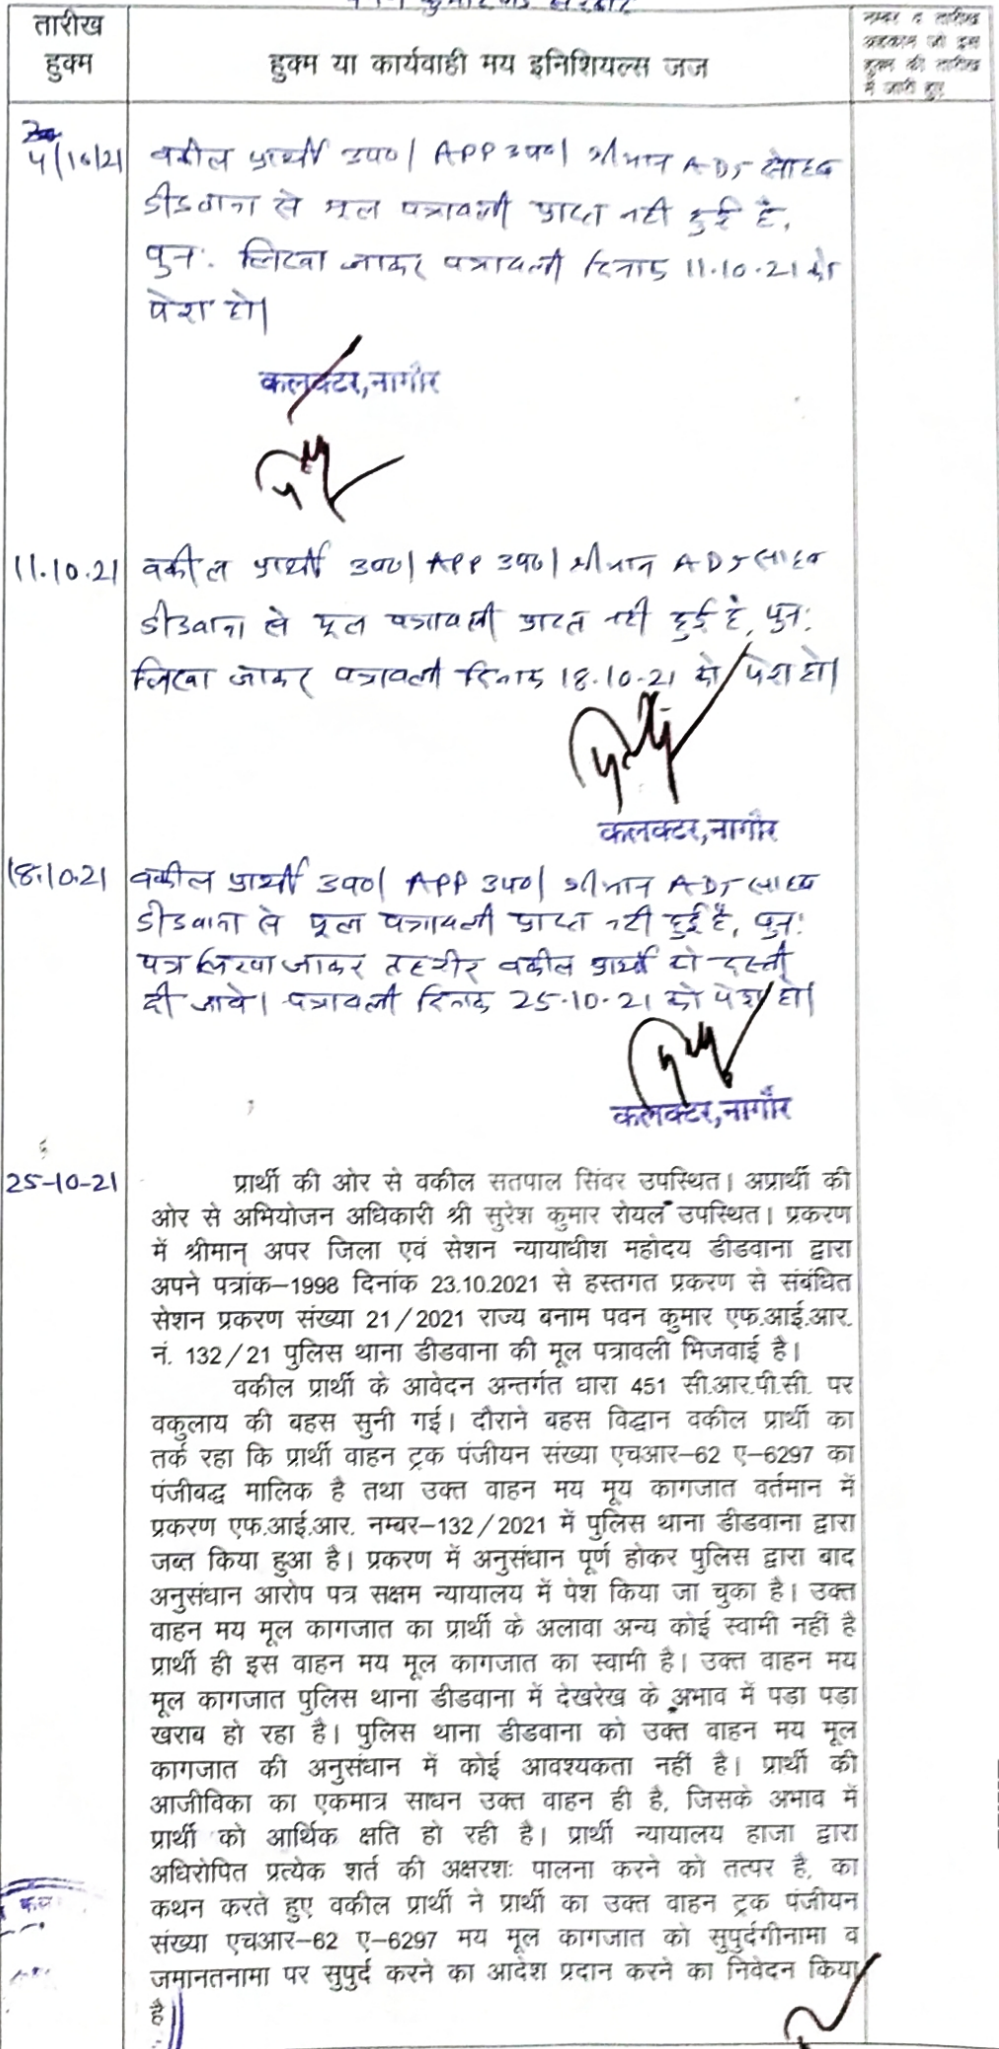 तारीख
हुक्म
हुक्म या कार्यवाही मय इनिशियल्स जज
नम्बर व तारीख
अहकाम जो इस
हुक्म की तारीख
में जारी हुए
4/10/21 वकील प्रार्थी उप०। APP उप०। श्रीमान ADJ साहब
डीडवाना से मूल पत्रावली प्राप्त नही हुई है,
पुन: लिखा जाकर पत्रावली दिनांक 11.10.21 को
पेश हो।
कलक्टर,नागौर
11.10.21 वकील प्रार्थी उप०। APP उप०। श्रीमान ADJ साहब
डीडवाना से मूल पत्रावली प्राप्त नही हुई है, पुन:
लिखा जाकर पत्रावली दिनांक 18.10.21 को पेश हो।
कलक्टर,नागौर
18.10.21 वकील प्रार्थी उप०। APP उप०। श्रीमान ADJ साहब
डीडवाना से मूल पत्रावली प्राप्त नही हुई है, पुन:
पत्र लिखा जाकर तहरीर वकील प्रार्थी को दस्ती
दी जावे। पत्रावली दिनांक 25.10.21 को पेश हो।
कलक्टर,नागौर
25-10-21 प्रार्थी की ओर से वकील सतपाल सिंवर उपस्थित। अप्रार्थी की
ओर से अभियोजन अधिकारी श्री सुरेश कुमार रोयल उपस्थित। प्रकरण
में श्रीमान् अपर जिला एवं सेशन न्यायाधीश महोदय डीडवाना द्वारा
अपने पत्रांक-1998 दिनांक 23.10.2021 से हस्तगत प्रकरण से संबंधित
सेशन प्रकरण संख्या 21/2021 राज्य बनाम पवन कुमार एफ.आई.आर.
नं. 132/21 पुलिस थाना डीडवाना की मूल पत्रावली भिजवाई है।
वकील प्रार्थी के आवेदन अन्तर्गत धारा 451 सी.आर.पी.सी. पर
वकुलाय की बहस सुनी गई। दौराने बहस विद्वान वकील प्रार्थी का
तर्क रहा कि प्रार्थी वाहन ट्रक पंजीयन संख्या एचआर-62 ए-6297 का
पंजीबद्ध मालिक है तथा उक्त वाहन मय मूय कागजात वर्तमान में
प्रकरण एफ.आई.आर. नम्बर-132/2021 में पुलिस थाना डीडवाना द्वारा
जब्त किया हुआ है। प्रकरण में अनुसंधान पूर्ण होकर पुलिस द्वारा बाद
अनुसंधान आरोप पत्र सक्षम न्यायालय में पेश किया जा चुका है। उक्त
वाहन मय मूल कागजात का प्रार्थी के अलावा अन्य कोई स्वामी नहीं है
प्रार्थी ही इस वाहन मय मूल कागजात का स्वामी है। उक्त वाहन मय
मूल कागजात पुलिस थाना डीडवाना में देखरेख के अभाव में पडा पडा
खराब हो रहा है। पुलिस थाना डीडवाना को उक्त वाहन मय मूल
कागजात की अनुसंधान में कोई आवश्यकता नहीं है। प्रार्थी की
आजीविका का एकमात्र साधन उक्त वाहन ही है, जिसके अभाव में
प्रार्थी को आर्थिक क्षति हो रही है। प्रार्थी न्यायालय हाजा द्वारा
अधिरोपित प्रत्येक शर्त की अक्षरशः पालना करने को तत्पर है, का
कथन करते हुए वकील प्रार्थी ने प्रार्थी का उक्त वाहन ट्रक पंजीयन
संख्या एचआर-62 ए-6297 मय मूल कागजात को सुपुर्दगीनामा व
जमानतनामा पर सुपुर्द करने का आदेश प्रदान करने का निवेदन किया
है।